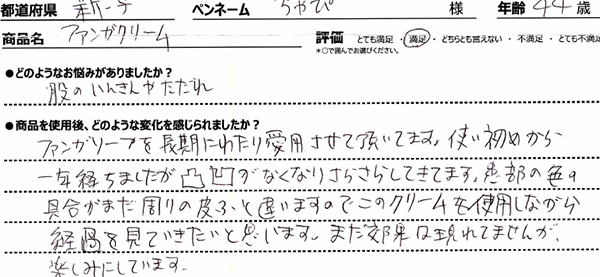 都道府県 ペンネーム ちゃぴ 様 年齢 44 歳
商品名 ファンガクリーム 評価 とても満足 ・ 満足 ・ どちらとも言えない ・ 不満足 ・ とても不満
*○で囲んでお選びください。
●どのようなお悩みがありましたか?
股のいんきんやただれ
●商品を使用後、どのような変化を感じられましたか?
ファンガソープを長期にわたり愛用させて頂いてます。使い初めから
一年経ちましたが凸凹がなくなりさらさらしてきてます。患部の色の
具合がまだ周りの皮ふと違いますのでこのクリームを使用しながら
経過を見ていきたいと思います。まだ効果は現れてませんが、
楽しみにしています。